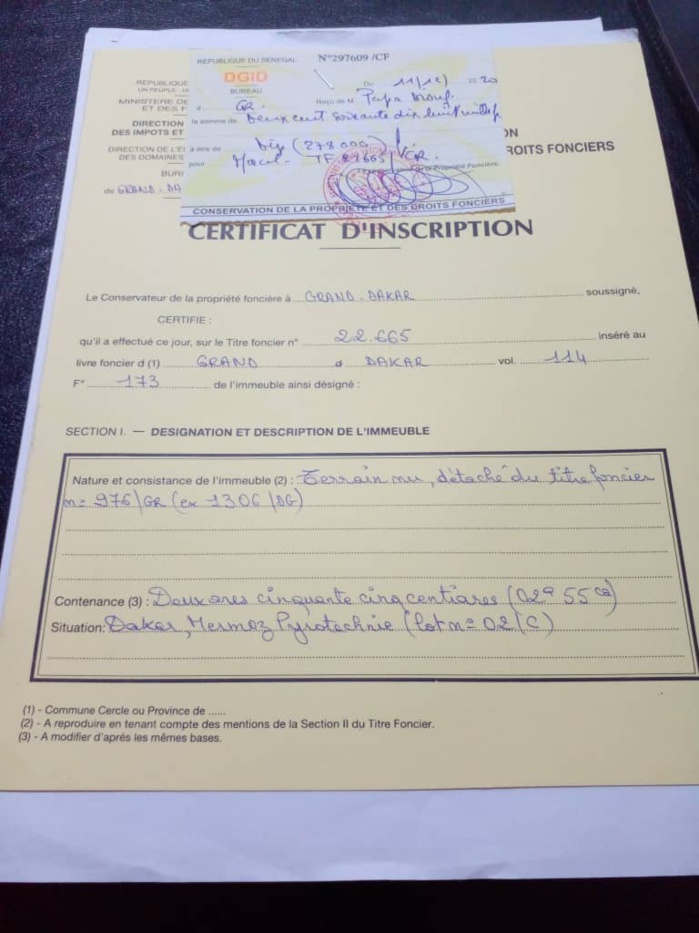 REPUBLIQUE DU SENEGAL
N°297609 /CF
DGID
BUREAU
Du 11/12/ 2020
à GR.
Reçu de M. Papa
la somme de Deux cent soixante dix huit mille f
à titre de (278 000)
pour TF 22665/
de la Propriété Foncière,
CONSERVATION DE LA PROPRIETE ET DES DROITS FONCIERS
REPUBLIQUE
UN PEUPLE - U
MINISTERE DE
ET DES F
DIRECTION
DES IMPOTS ET
DIRECTION DE L'E
DES DOMAINES
BURE
de GRAND-DA
ON
ROITS FONCIERS
CERTIFICAT D'INSCRIPTION
Le Conservateur de la propriété foncière à GRAND-DAKAR soussigné,
CERTIFIE :
qu'il a effectué ce jour, sur le Titre foncier n° 22.665 inséré au
livre foncier d (1) GRAND d DAKAR vol. 114
F° 173 de l'immeuble ainsi désigné :
SECTION I. — DESIGNATION ET DESCRIPTION DE L'IMMEUBLE
Nature et consistance de l'immeuble (2) : Terrain nu, détaché du titre foncier
n= 976/GR (ex 1306/DG)
Contenance (3) : Deux ares cinquante cinq centiares (02a 55ca)
Situation: Dakar, Mermoz Pyrotechnie (lot n° 02/C)
(1) - Commune Cercle ou Province de ......
(2) - A reproduire en tenant compte des mentions de la Section II du Titre Foncier.
(3) - A modifier d'aprés les mêmes bases.